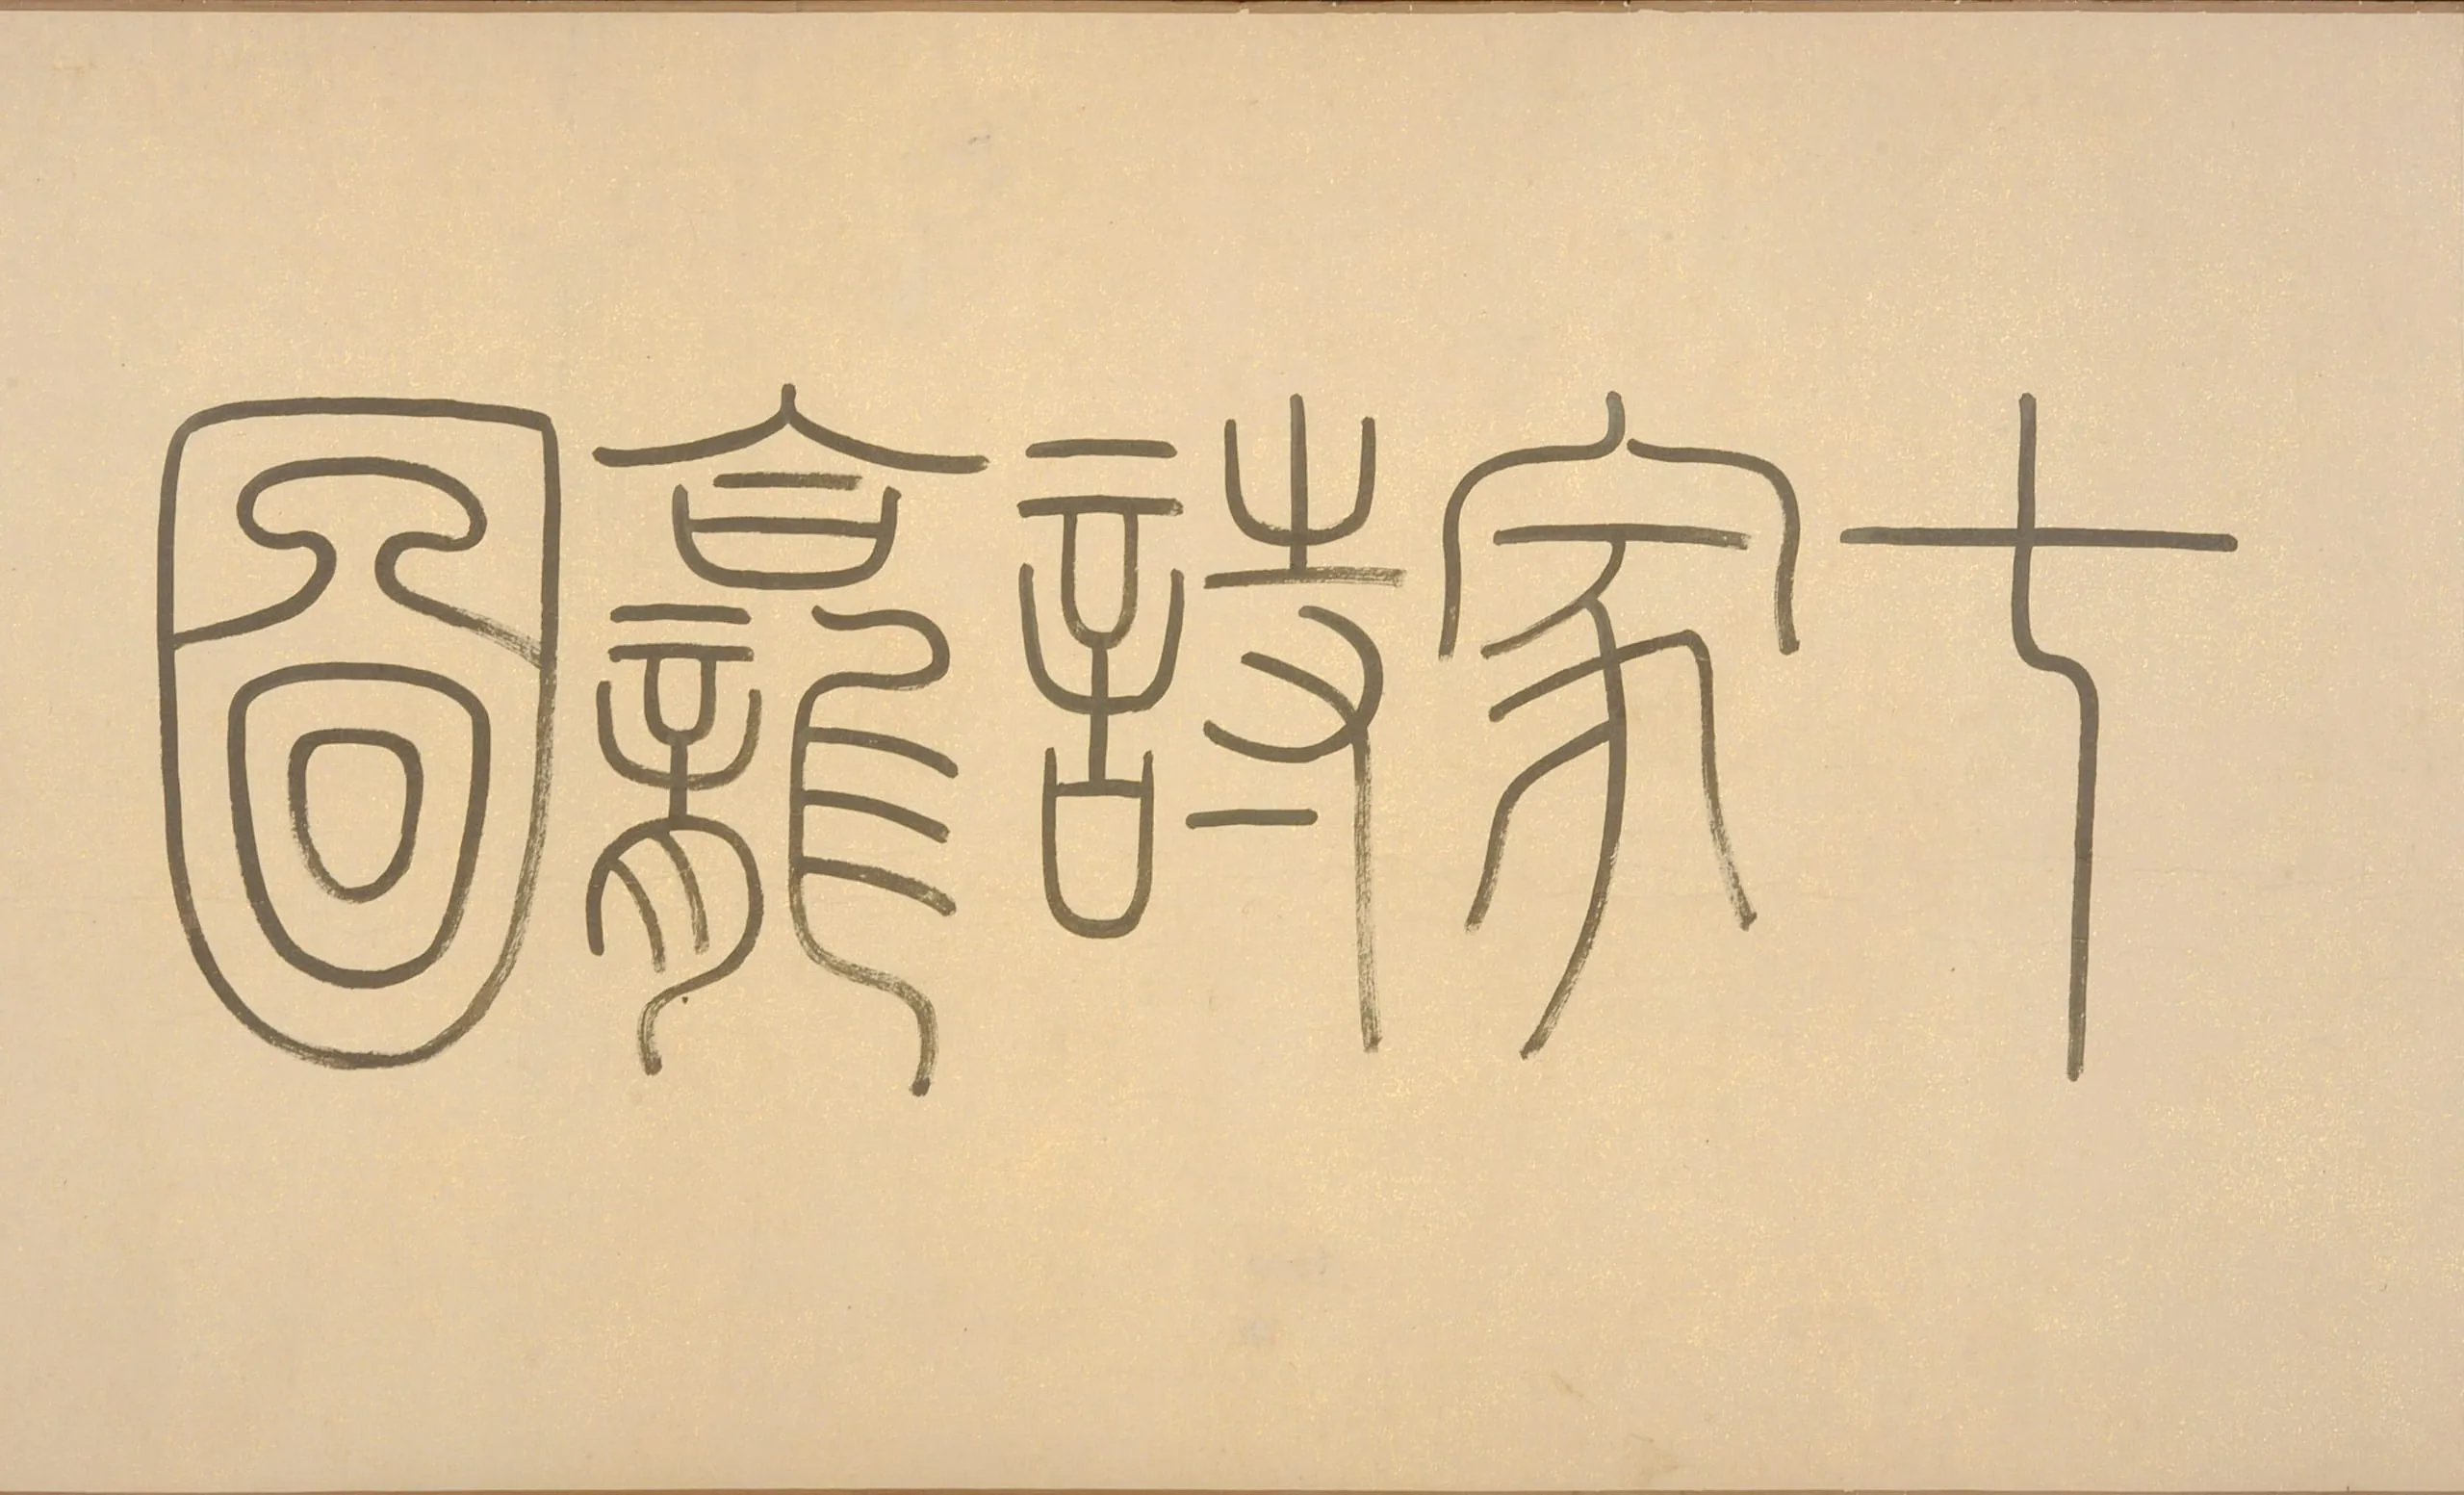 七家詩龕圖